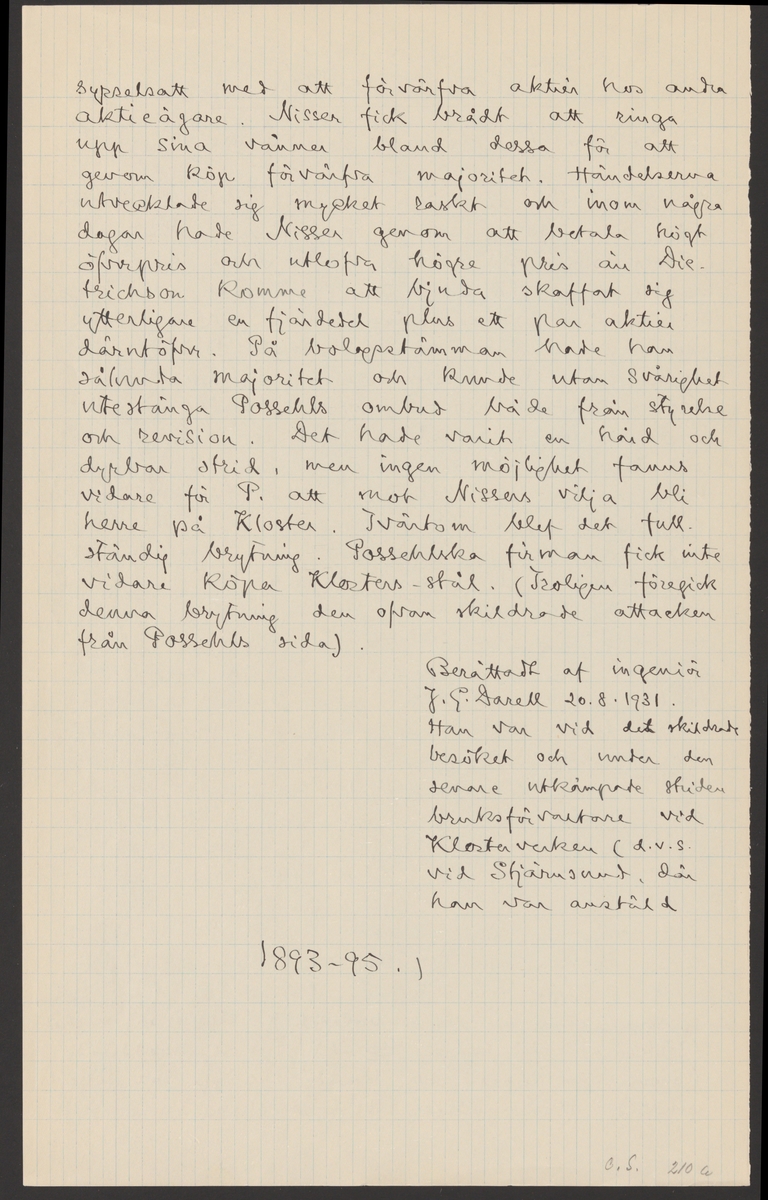 sysselsatt med att förvärfva aktier hos andra
aktieägare. Nisser fick brådt att ringa
upp sina vänner bland dessa för att
genom köp förvärfva majoritet. Händelserna
utvecklade sig mycket raskt och inom några
dagar hade Nisser genom att betala högt
öfverpris och utlofva högre pris än Die-
trichson komme att bjuda skaffat sig
ytterligare en fjärdedel plus ett par aktier
därutöfver. På bolagsstämman hade han
sålunda majoritet och kunde utan svårighet
utestänga Possehls ombud både från styrelse
och revision. Det hade varit en hård och
dyrbar strid, men ingen möjlighet fanns
vidare för P. att mot Nissers vilja bli
herre på Kloster. Tvärtom blef det full-
ständig brytning. Possehlska firman fick inte
vidare köpa Klosters-stål. (Troligen föregick
denna brytning den ofvan skildrade attacken
från Possehls sida).
Berättadt af ingeniör
J. G. Darell 20.8.1931.
Han var vid det skildrade
besöket och under den
senare utkämpade striden
bruksförvaltare vid
Klosterverken (d.v.s.
vid Stjärnsund, där
han var anställd
1893-95.)
C. S. 210 a